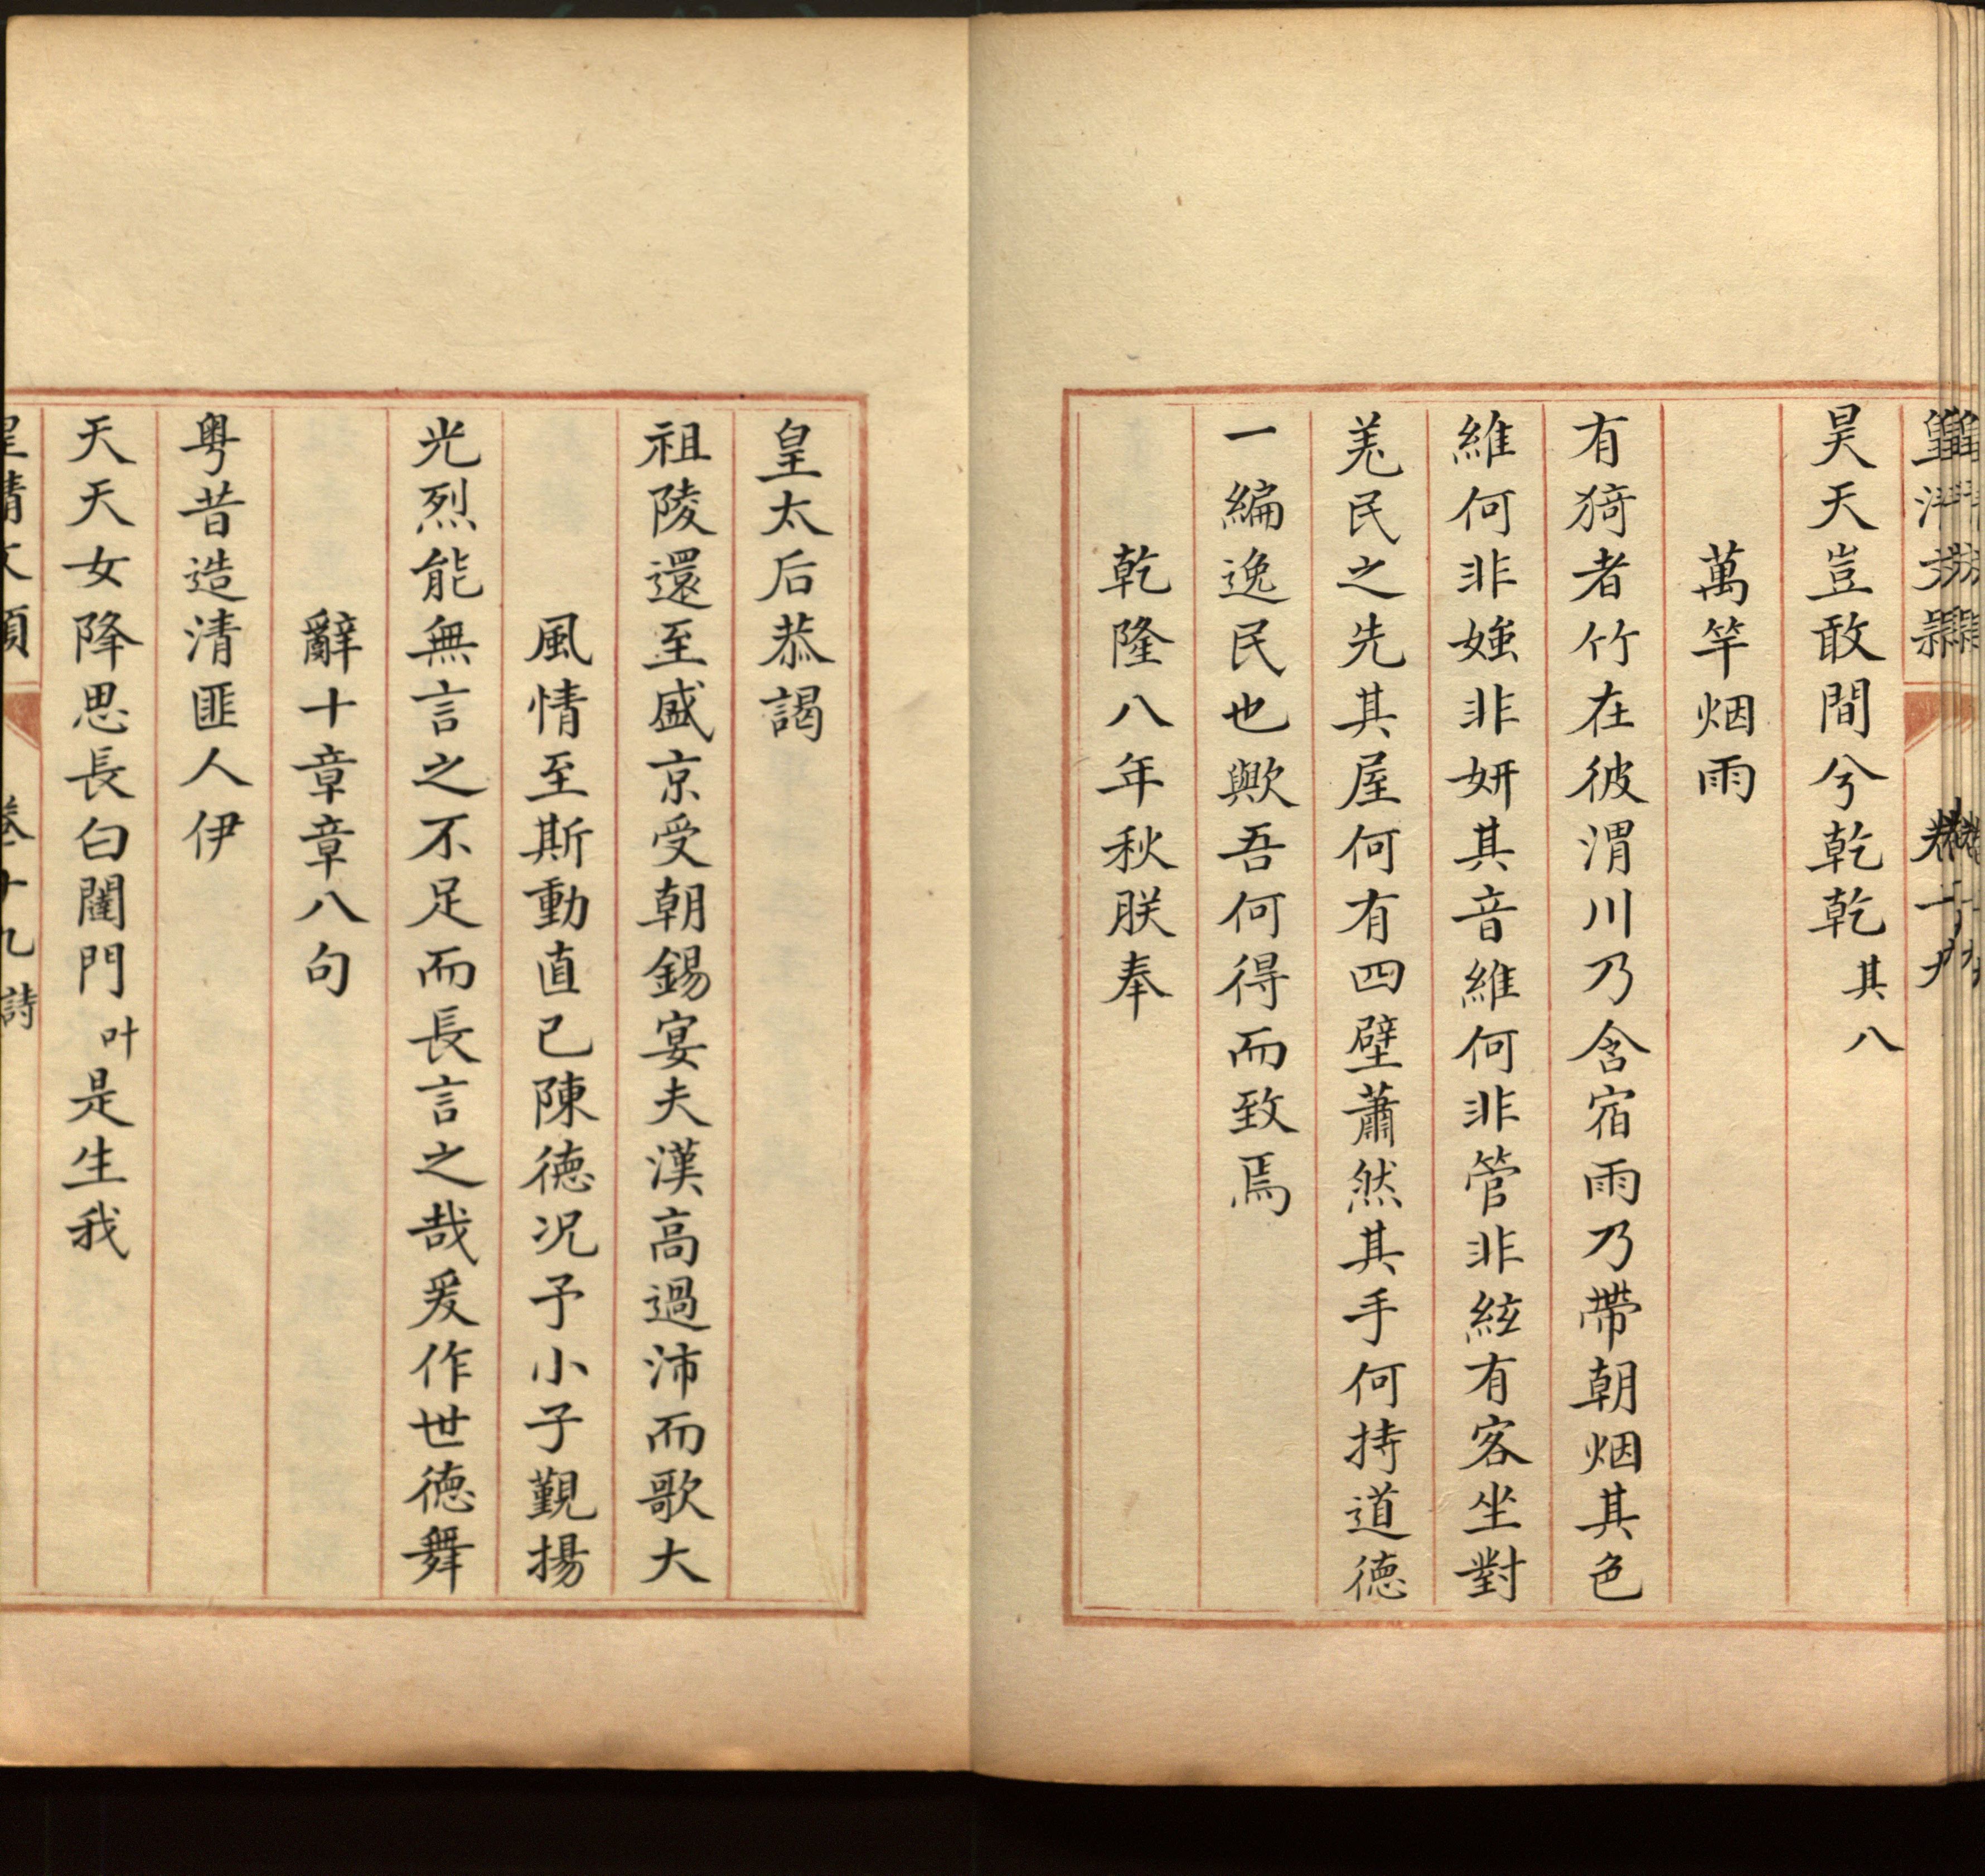 昊天豈敢間兮乾乾其八
萬竿烟雨
有猗者竹在彼渭川乃含宿雨乃帶朝烟其色
維何非媸非妍其音維何非管非絃有客坐對
羌民之先其屋何有四壁蕭然其手何持道德
一編逸民也歟吾何得而致焉
乾隆八年秋朕奉
皇太后恭謁
祖陵還至盛京受朝錫宴夫漢高過沛而歌大
風情至斯動直己陳德况予小子覲揚
光烈能無言之不足而長言之哉爰作世德舞
辭十章章八句
粤昔造清匪人伊
天天女降思長白闥門叶是生我
皇清文頴 卷十九 詩